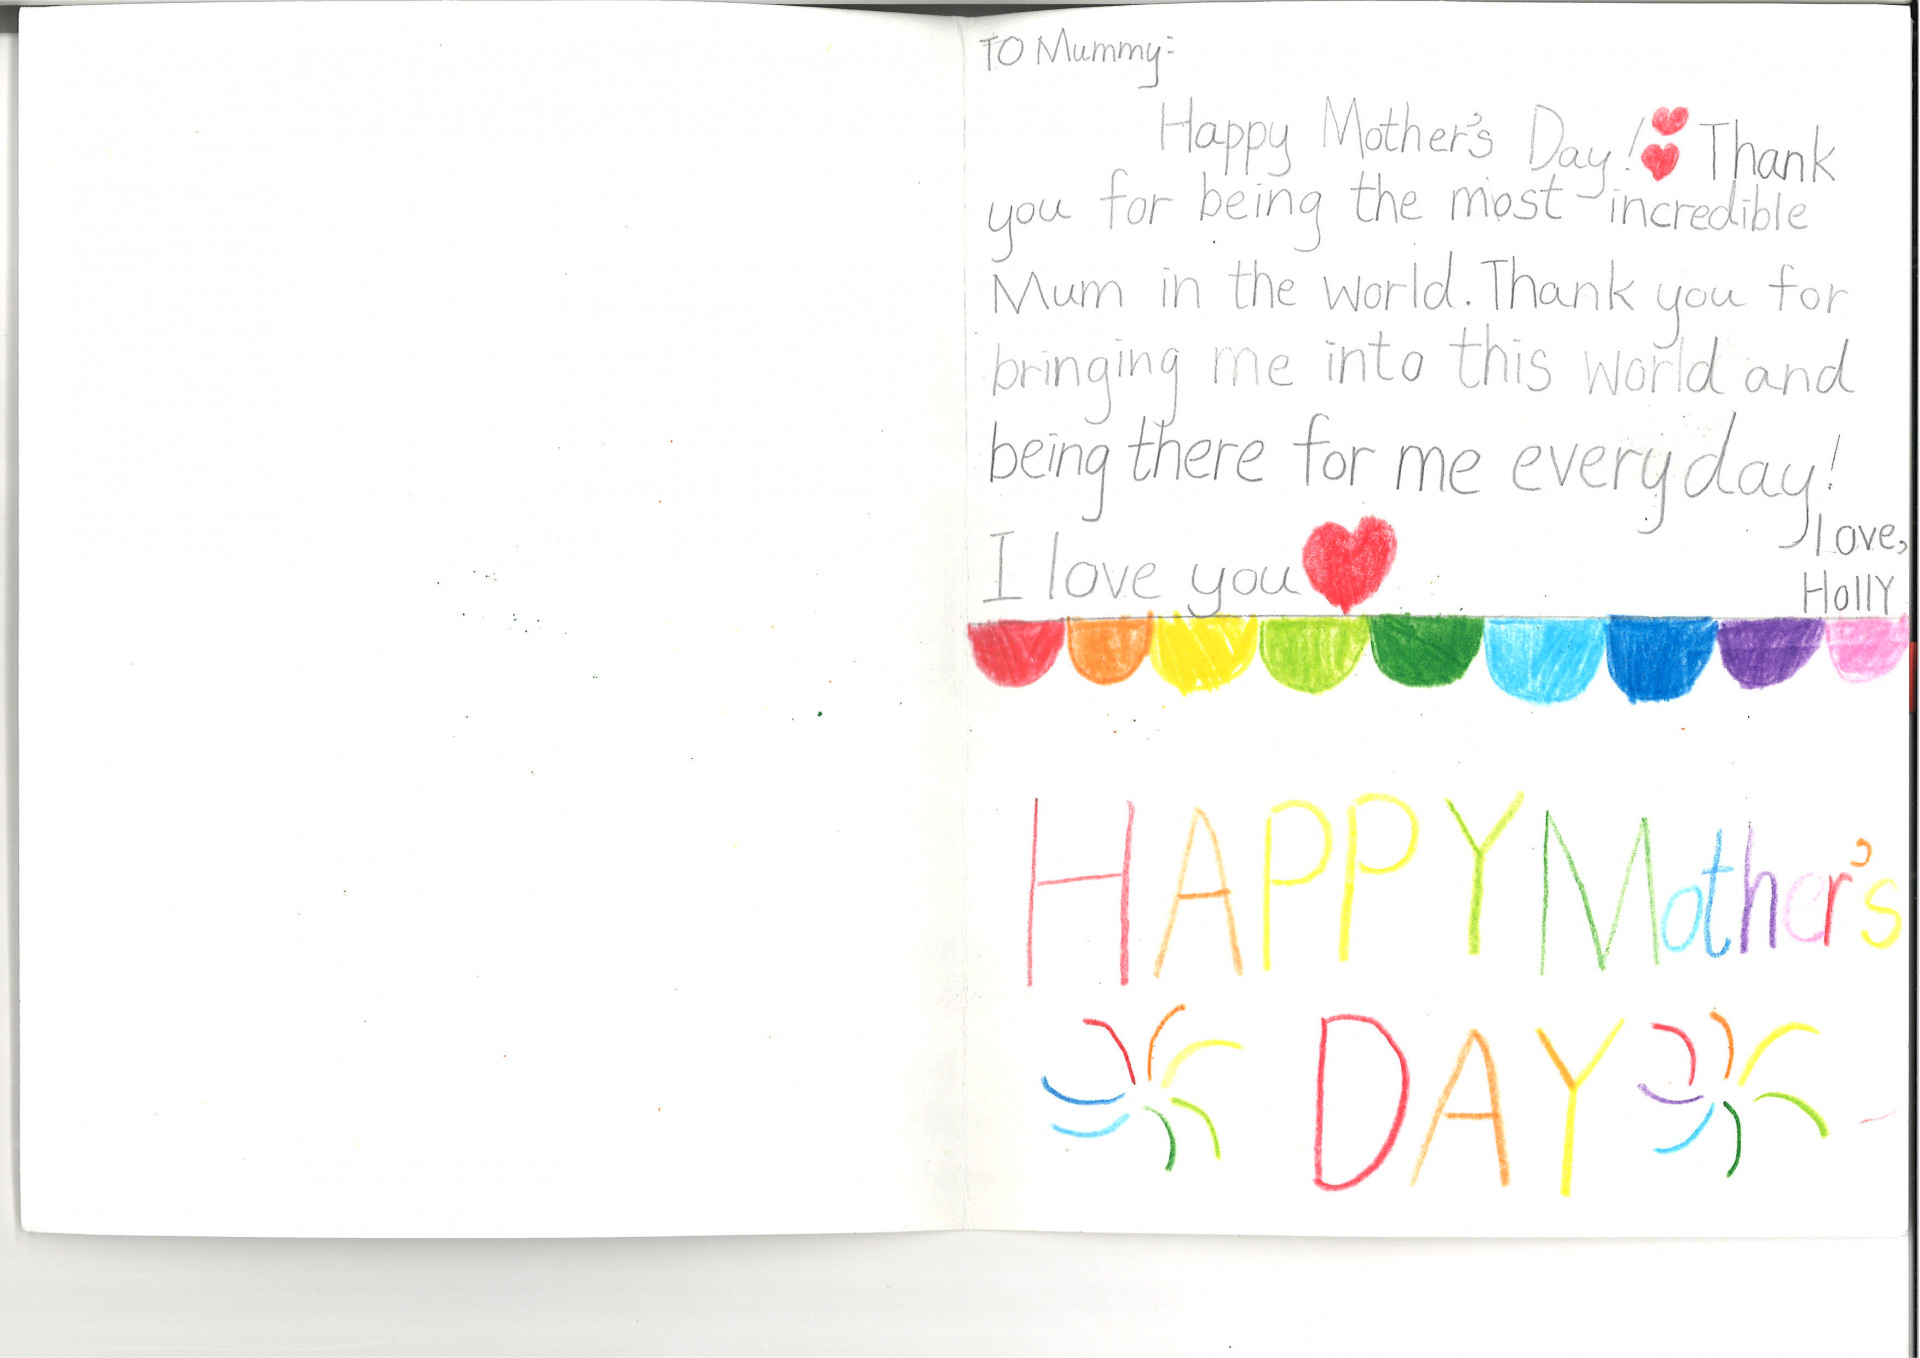 TO Mummy:
Happy Mother's Day! Thank
you for being the most incredible
Mum in the world. Thank you for
bringing me into this world and
being there for me everyday!
I love you
Love,
Holly
HAPPY Mother's
DAY